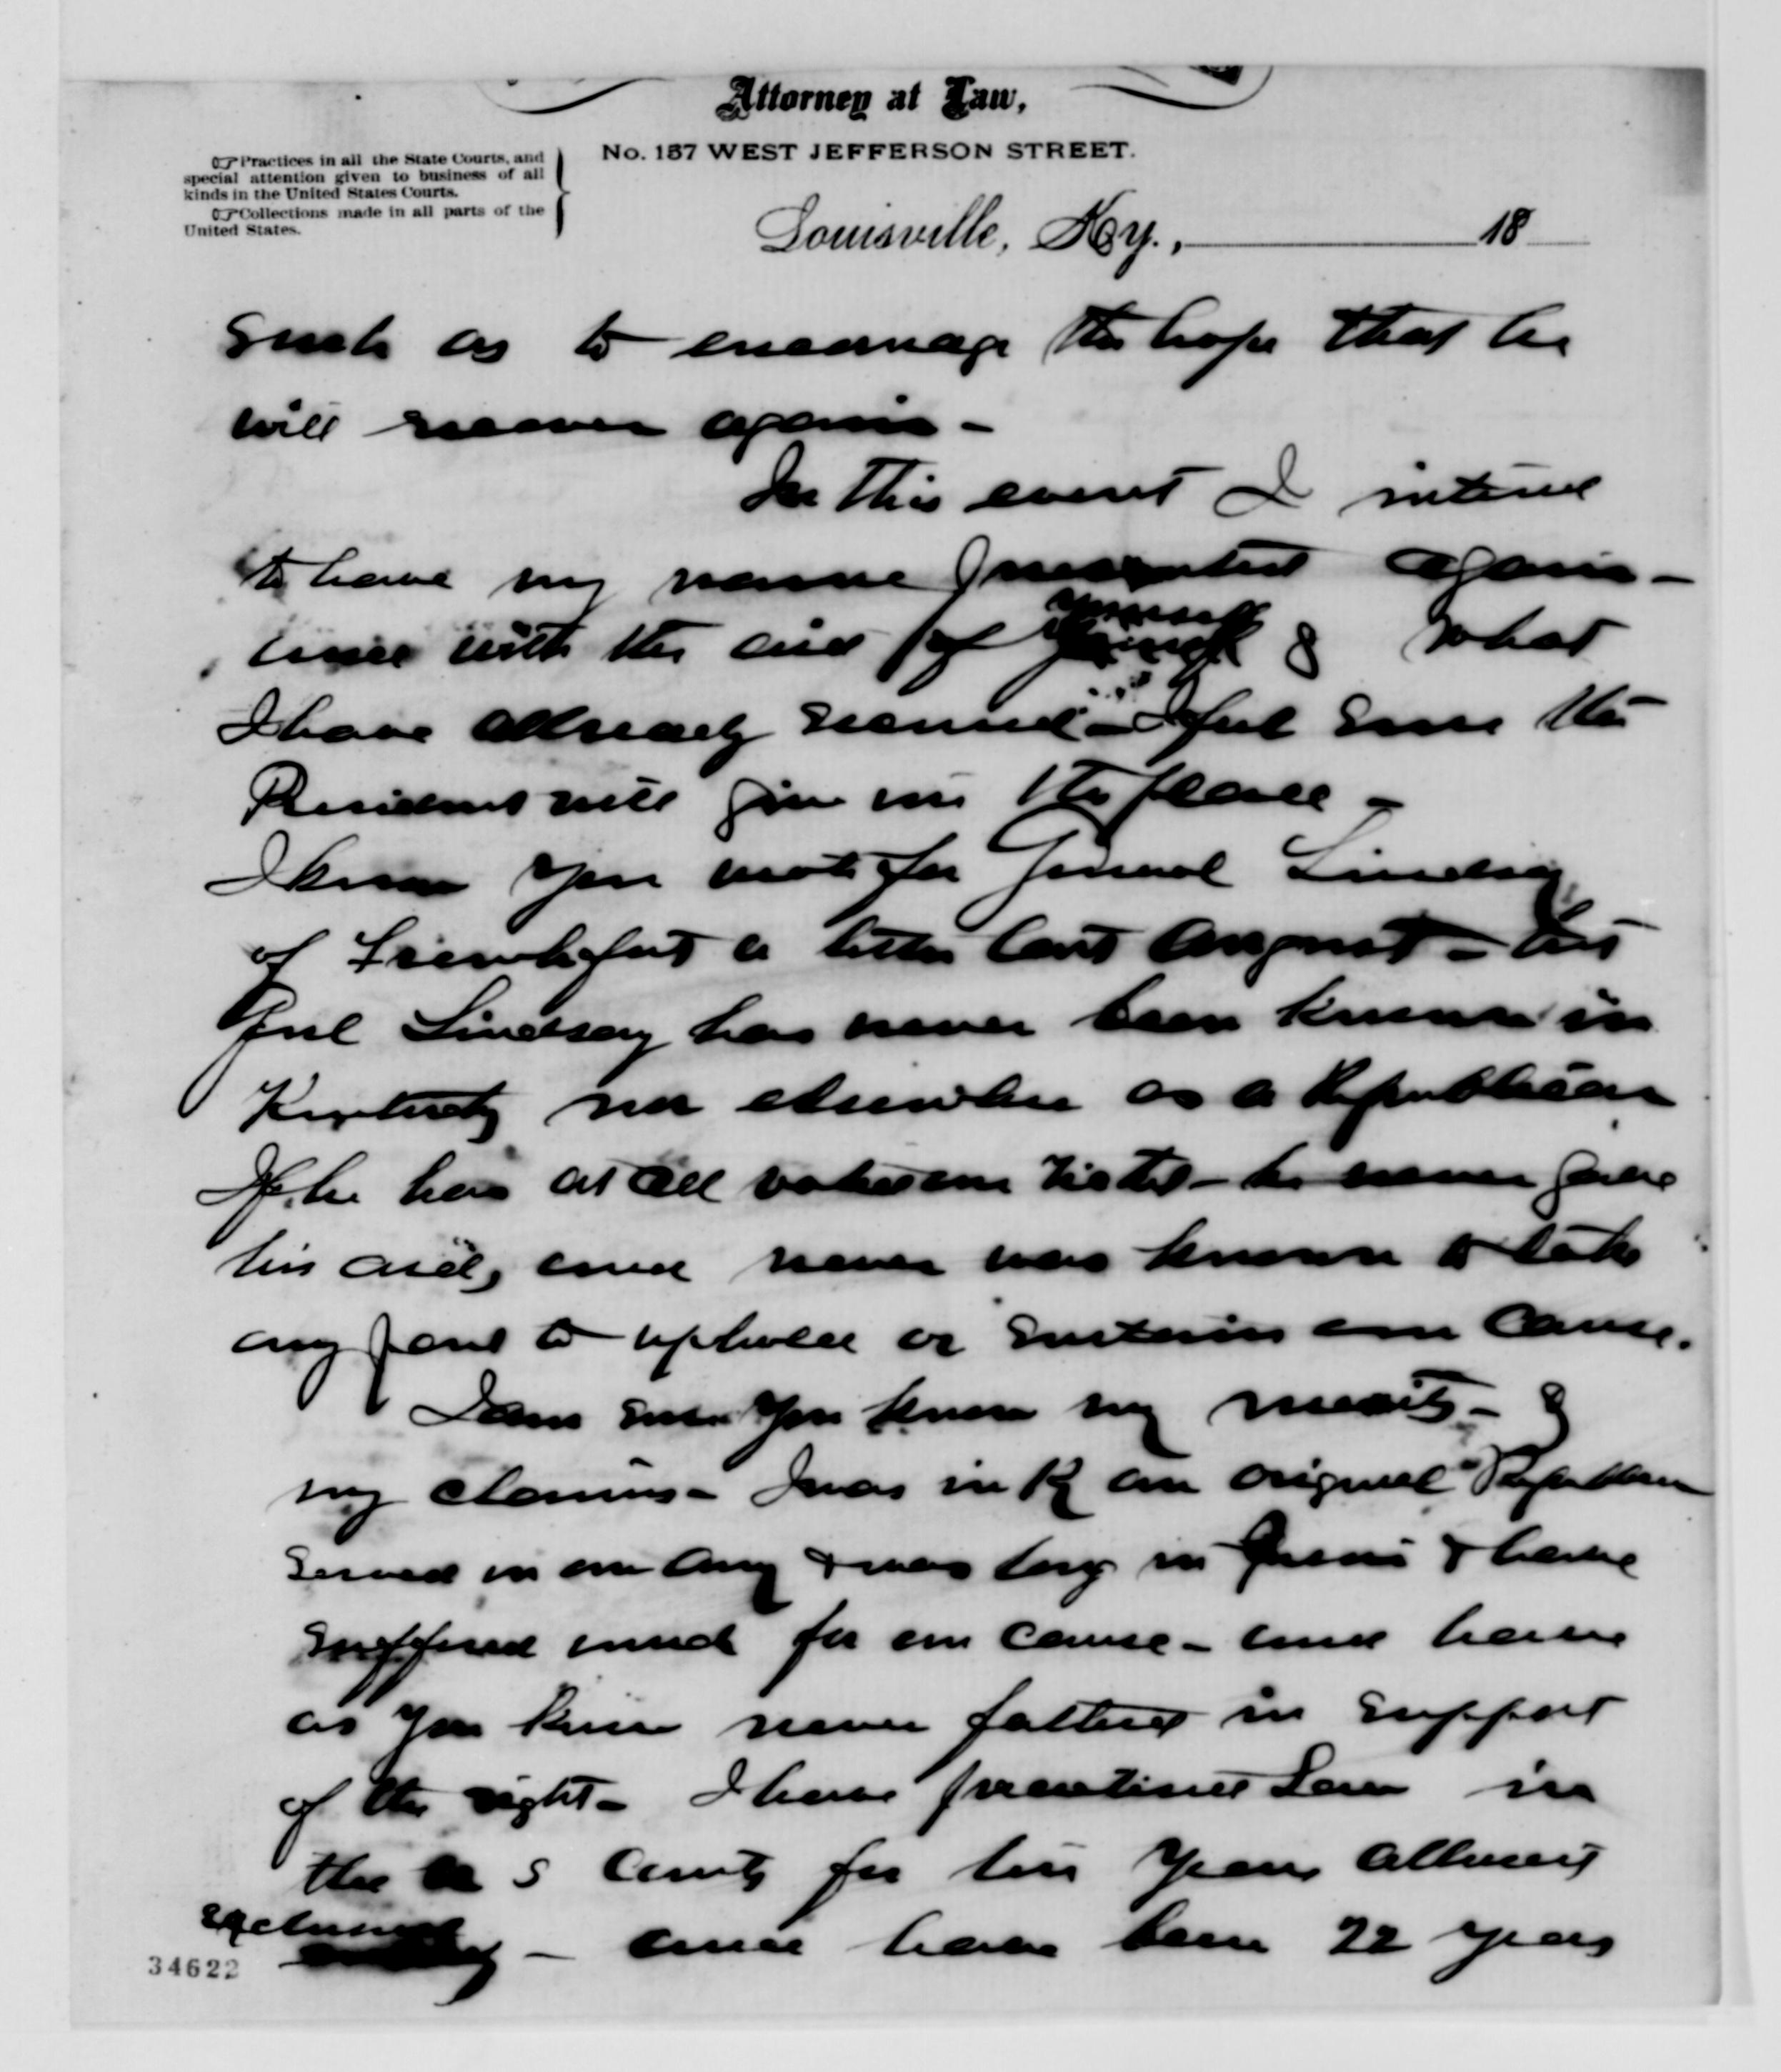 Attorney at Law,
No. 157 WEST JEFFERSON STREET.
☞Practices in all the State Courts, and
special attention given to business of all
kinds in the United States Courts.
☞Collections made in all parts of the
United States.
Louisville, Ky., 18
such as to encourage the hope that he
will recover again -
In this event I intend
to have my name presented again -
and with the aid of yourself & what
I have already secured - I feel sure the
President will give me the place -
I know you wrote for General Lindsay
of Frankfort a letter last August - but
Genl Lindsay has never been known in
Kentucky nor elsewhere as a Republican
If he has at all voted our ticket - he never gave
his aid, and never was known to take
any part to uphold or sustain our cause.
I am sure you know my merits - &
my claims - I was in Ky an original Republican
served in our army & was long in prison & have
suffered much for our cause - and have
as you know never faltered in support
of the right - I have practiced Law in
the U S Courts for ten years allmost
exclusively - and have been 22 years
34622